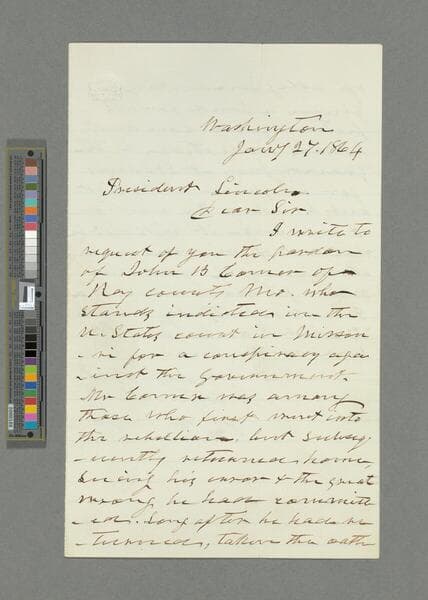 Washington
Jany 27. 1864
President Lincoln
Dear Sir
I write to
request of you the pardon
of John B Comer of
Ray county Mo. who
stands indicted in the
U. States court in Missou
-ri for a conspiracy aga
-inst the Government.
Mr Comer was among
those who first went into
the rebellion. but subseq
-uently returned home,
seeing his error & the great
wrong he had committ
-ed. Long after he had re
-turned, taken the oath